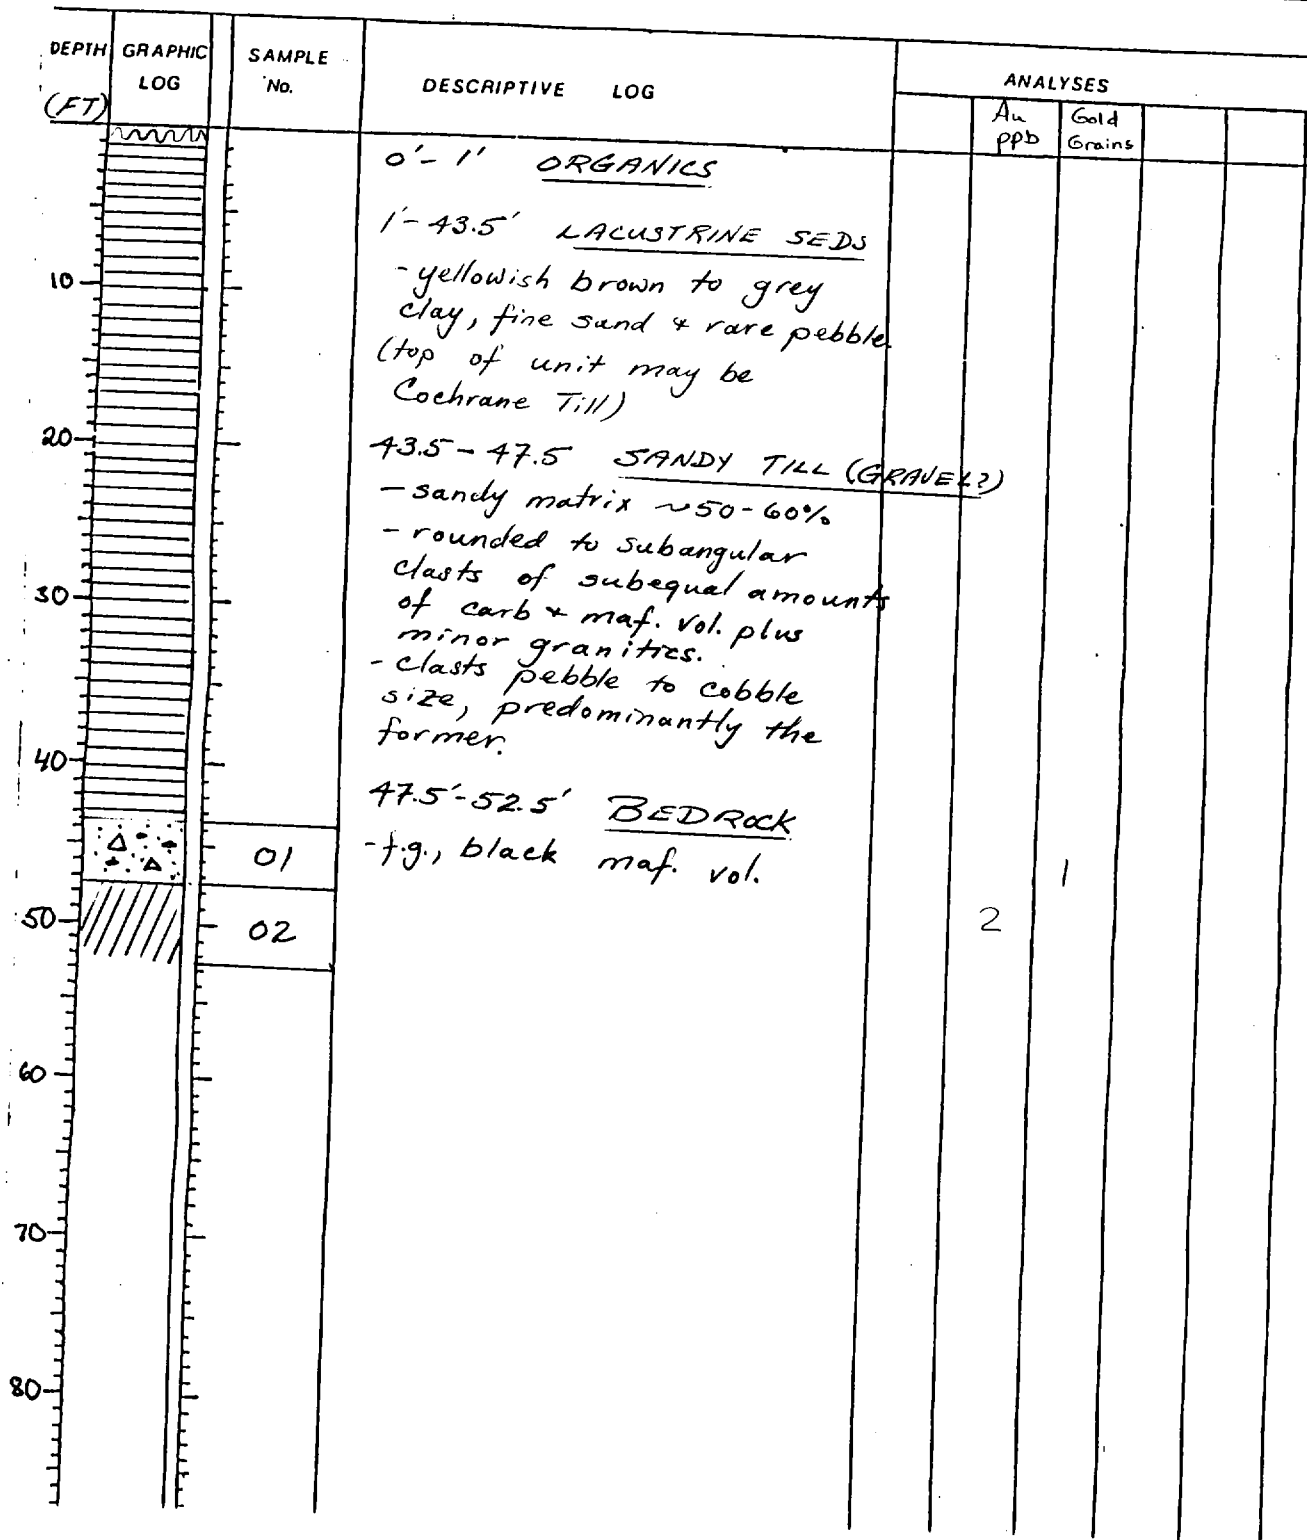 DEPTH GRAPHIC LOG SAMPLE No. DESCRIPTIVE LOG ANALYSES
(FT) Au ppb Gold Grains
0'-1' ORGANICS
1'-43.5' LACUSTRINE SEDS
- yellowish brown to grey
clay, fine sand & rare pebble.
(top of unit may be
Cochrane Till)
43.5-47.5 SANDY TILL (GRAVEL?)
- sandy matrix ~50-60%
- rounded to subangular
clasts of subequal amounts
of carb & maf. vol. plus
minor granitics.
- clasts pebble to cobble
size, predominantly the
former.
47.5'-52.5' BEDROCK
- f.g., black maf. vol.
10
20
30
40
50
60
70
80
01 1
02 2